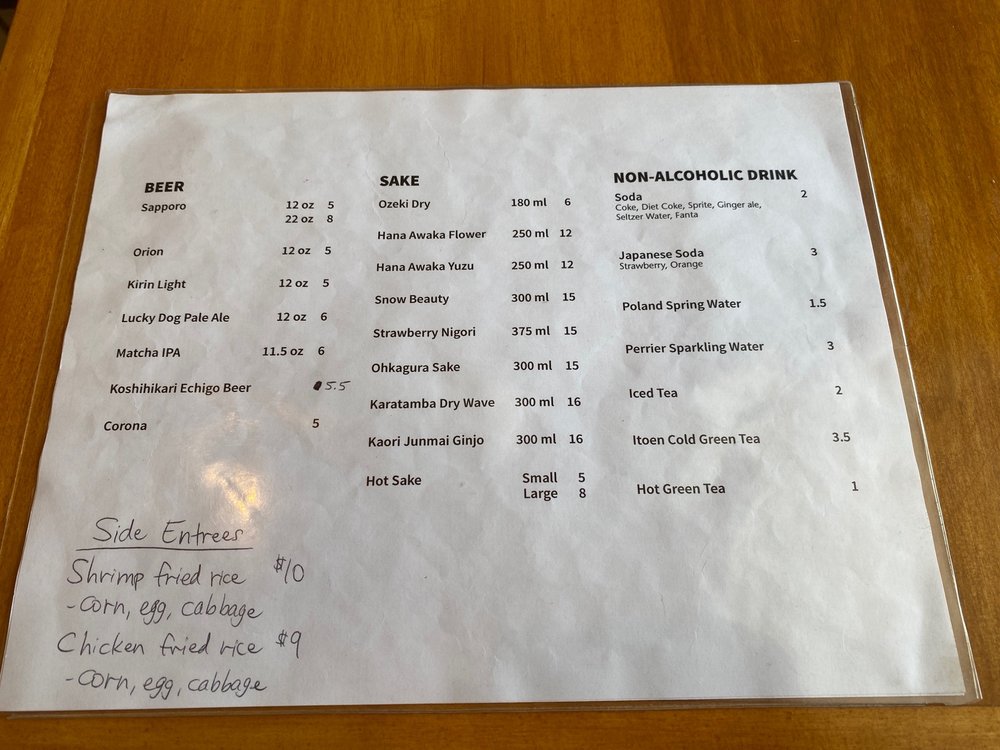 BEER
Sapporo 12 oz 5
22 oz 8
Orion 12 oz 5
Kirin Light 12 oz 5
Lucky Dog Pale Ale 12 oz 6
Matcha IPA 11.5 oz 6
Koshihikari Echigo Beer 5.5
Corona 5
SAKE
Ozeki Dry 180 ml 6
Hana Awaka Flower 250 ml 12
Hana Awaka Yuzu 250 ml 12
Snow Beauty 300 ml 15
Strawberry Nigori 375 ml 15
Ohkagura Sake 300 ml 15
Karatamba Dry Wave 300 ml 16
Kaori Junmai Ginjo 300 ml 16
Hot Sake Small 5
Large 8
NON-ALCOHOLIC DRINK
Soda 2
Coke, Diet Coke, Sprite, Ginger ale,
Seltzer Water, Fanta
Japanese Soda 3
Strawberry, Orange
Poland Spring Water 1.5
Perrier Sparkling Water 3
Iced Tea 2
Itoen Cold Green Tea 3.5
Hot Green Tea 1
Side Entrees
Shrimp fried rice $10
- Corn, egg, cabbage
Chicken fried rice $9
- Corn, egg, cabbage